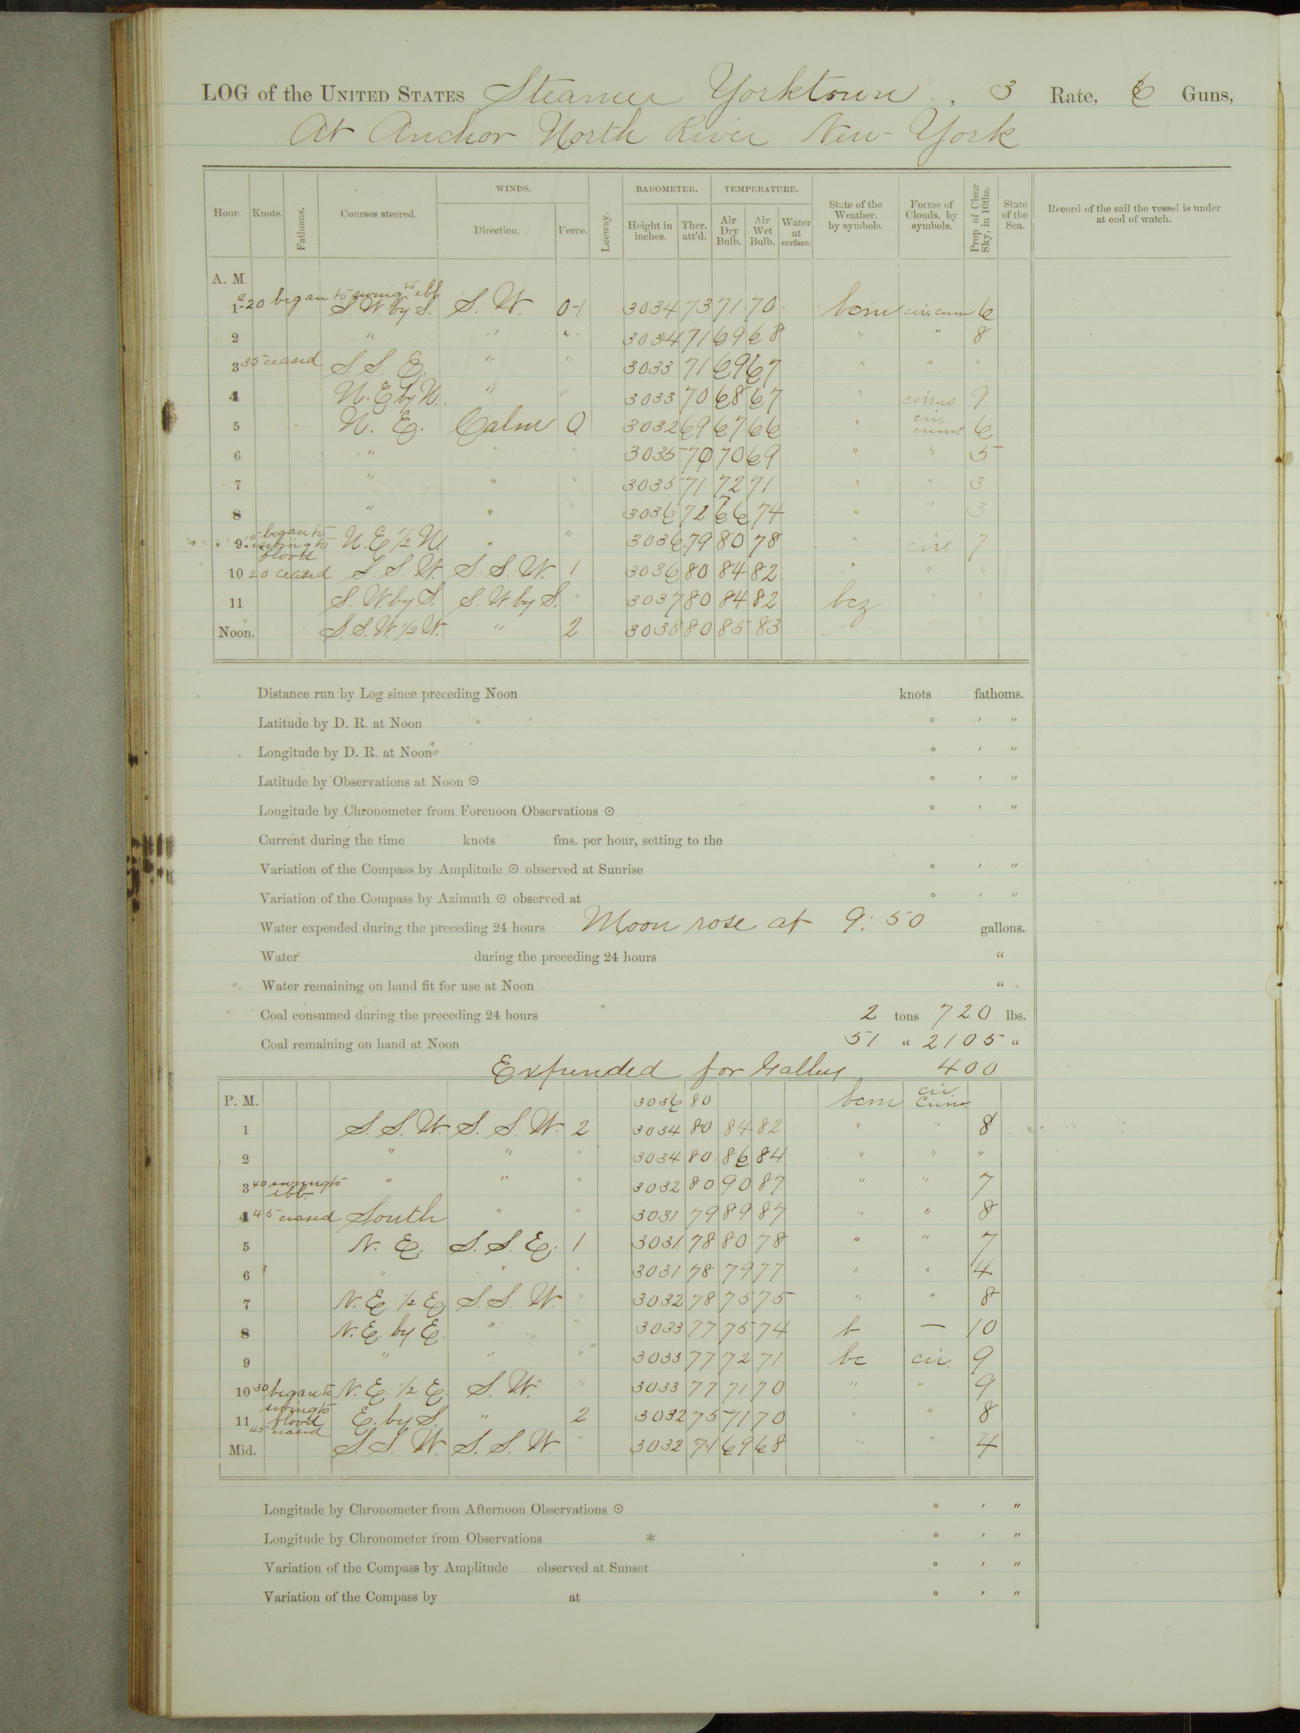 LOG of the UNITED STATES Steamer Yorktown, 3 Rate, 6 Guns,
At Anchor North River New York
Hour. Knots. Fathoms. Courses steered. WINDS. Direction. Force. Leeway. BAROMETER. Height in inches. Ther. att'd. TEMPERATURE. Air Dry Bulb. Air Wet Bulb. Water at surface. State of the Weather, by symbols. Forms of Clouds, by symbols. Prop of Clear Sky, in 10ths. State of the Sea. Record of the sail the vessel is under at end of watch.
A. M.
20 began to swing to ebb
1 S. W. by S. S. W. 0-1 3034 73 71 70 bcm cir. cum 6
2 " " " 3034 71 69 68 " " 8
3 35 ceased S. S. E. " " 3033 71 69 67 " " "
4 N. E by N. " " 3033 70 68 67 " cirrus 9
5 N. E. Calm 0 3032 69 67 66 " cir. cum. 6
6 " " " 3035 70 70 69 " " 5
7 " " " 3035 71 72 71 " " 3
8 " " 3036 72 76 74 " " 3
9 began to swing to flood N. E 1/2 N. " " 3036 79 80 78 " cir. 7
10 20 ceased S. S. W. S. S. W. 1 3036 80 84 82 " " "
11 S. W by S. S. W. by S. " 3037 80 84 82 bcz " "
Noon. S. S. W. 1/2 W. " 2 3038 80 85 83 " "
Distance run by Log since preceding Noon knots fathoms.
Latitude by D. R. at Noon ° ′ ″
Longitude by D. R. at Noon ° ′ ″
Latitude by Observations at Noon ☉ ° ′ ″
Longitude by Chronometer from Forenoon Observations ☉ ° ′ ″
Current during the time knots fms. per hour, setting to the
Variation of the Compass by Amplitude ☉ observed at Sunrise ° ′ ″
Variation of the Compass by Azimuth ☉ observed at ° ′ ″
Water expended during the preceding 24 hours Moon rose at 9:50 gallons.
Water during the preceding 24 hours "
Water remaining on hand fit for use at Noon "
Coal consumed during the preceding 24 hours 2 tons 720 lbs.
Coal remaining on hand at Noon 51 " 2105 "
Expended for Galley 400
P. M. 3036 80 bcm cir. cum
1 S. S. W. S. S. W. 2 3034 80 84 82 " " 8
2 " " " 3034 80 86 84 " " "
3 40 swung to ebb " " 3032 80 90 87 " " 7
4 45 ceased South " " 3031 79 89 87 " " 8
5 N. E. S. S. E. 1 3031 78 80 78 " " 7
6 " " " 3031 78 79 77 " " 4
7 N. E. 1/2 E. S. S. W. " 3032 78 75 75 " " 8
8 N. E. by E. " " 3033 77 75 74 b — 10
9 " " " 3033 77 72 71 bc cir. 9
10 30 began to swing to flood N. E. 1/2 E. S. W. " 3033 77 71 70 " " 9
11 45 ceased E. by S. " 2 3032 75 71 70 " " 8
Mid. S. S. W. S. S. W. " 3032 74 69 68 " " 4
Longitude by Chronometer from Afternoon Observations ☉ ° ′ ″
Longitude by Chronometer from Observations * ° ′ ″
Variation of the Compass by Amplitude observed at Sunset ° ′ ″
Variation of the Compass by at ° ′ ″